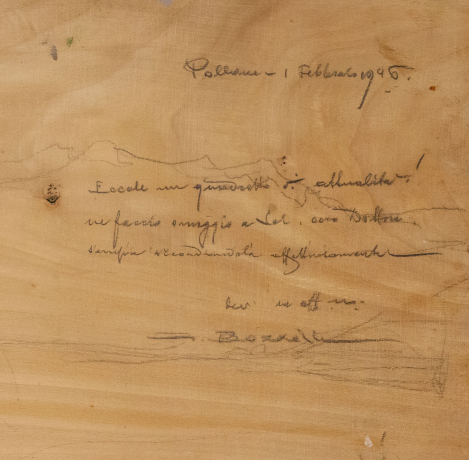 Pollone - 1 Febbraio 1946.
Eccole un quadretto di attualità!
ne faccio omaggio a Lei, caro Dottore,
sempre ricordandola affettuosamente